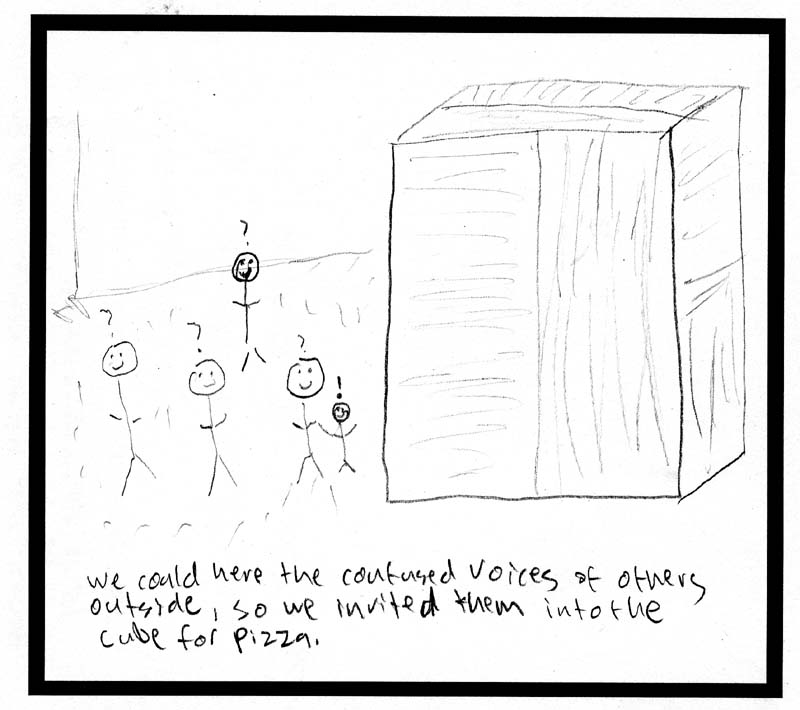 ?
?
?
?
!
we could here the confused voices of others
outside, so we invited them into the
cube for pizza.